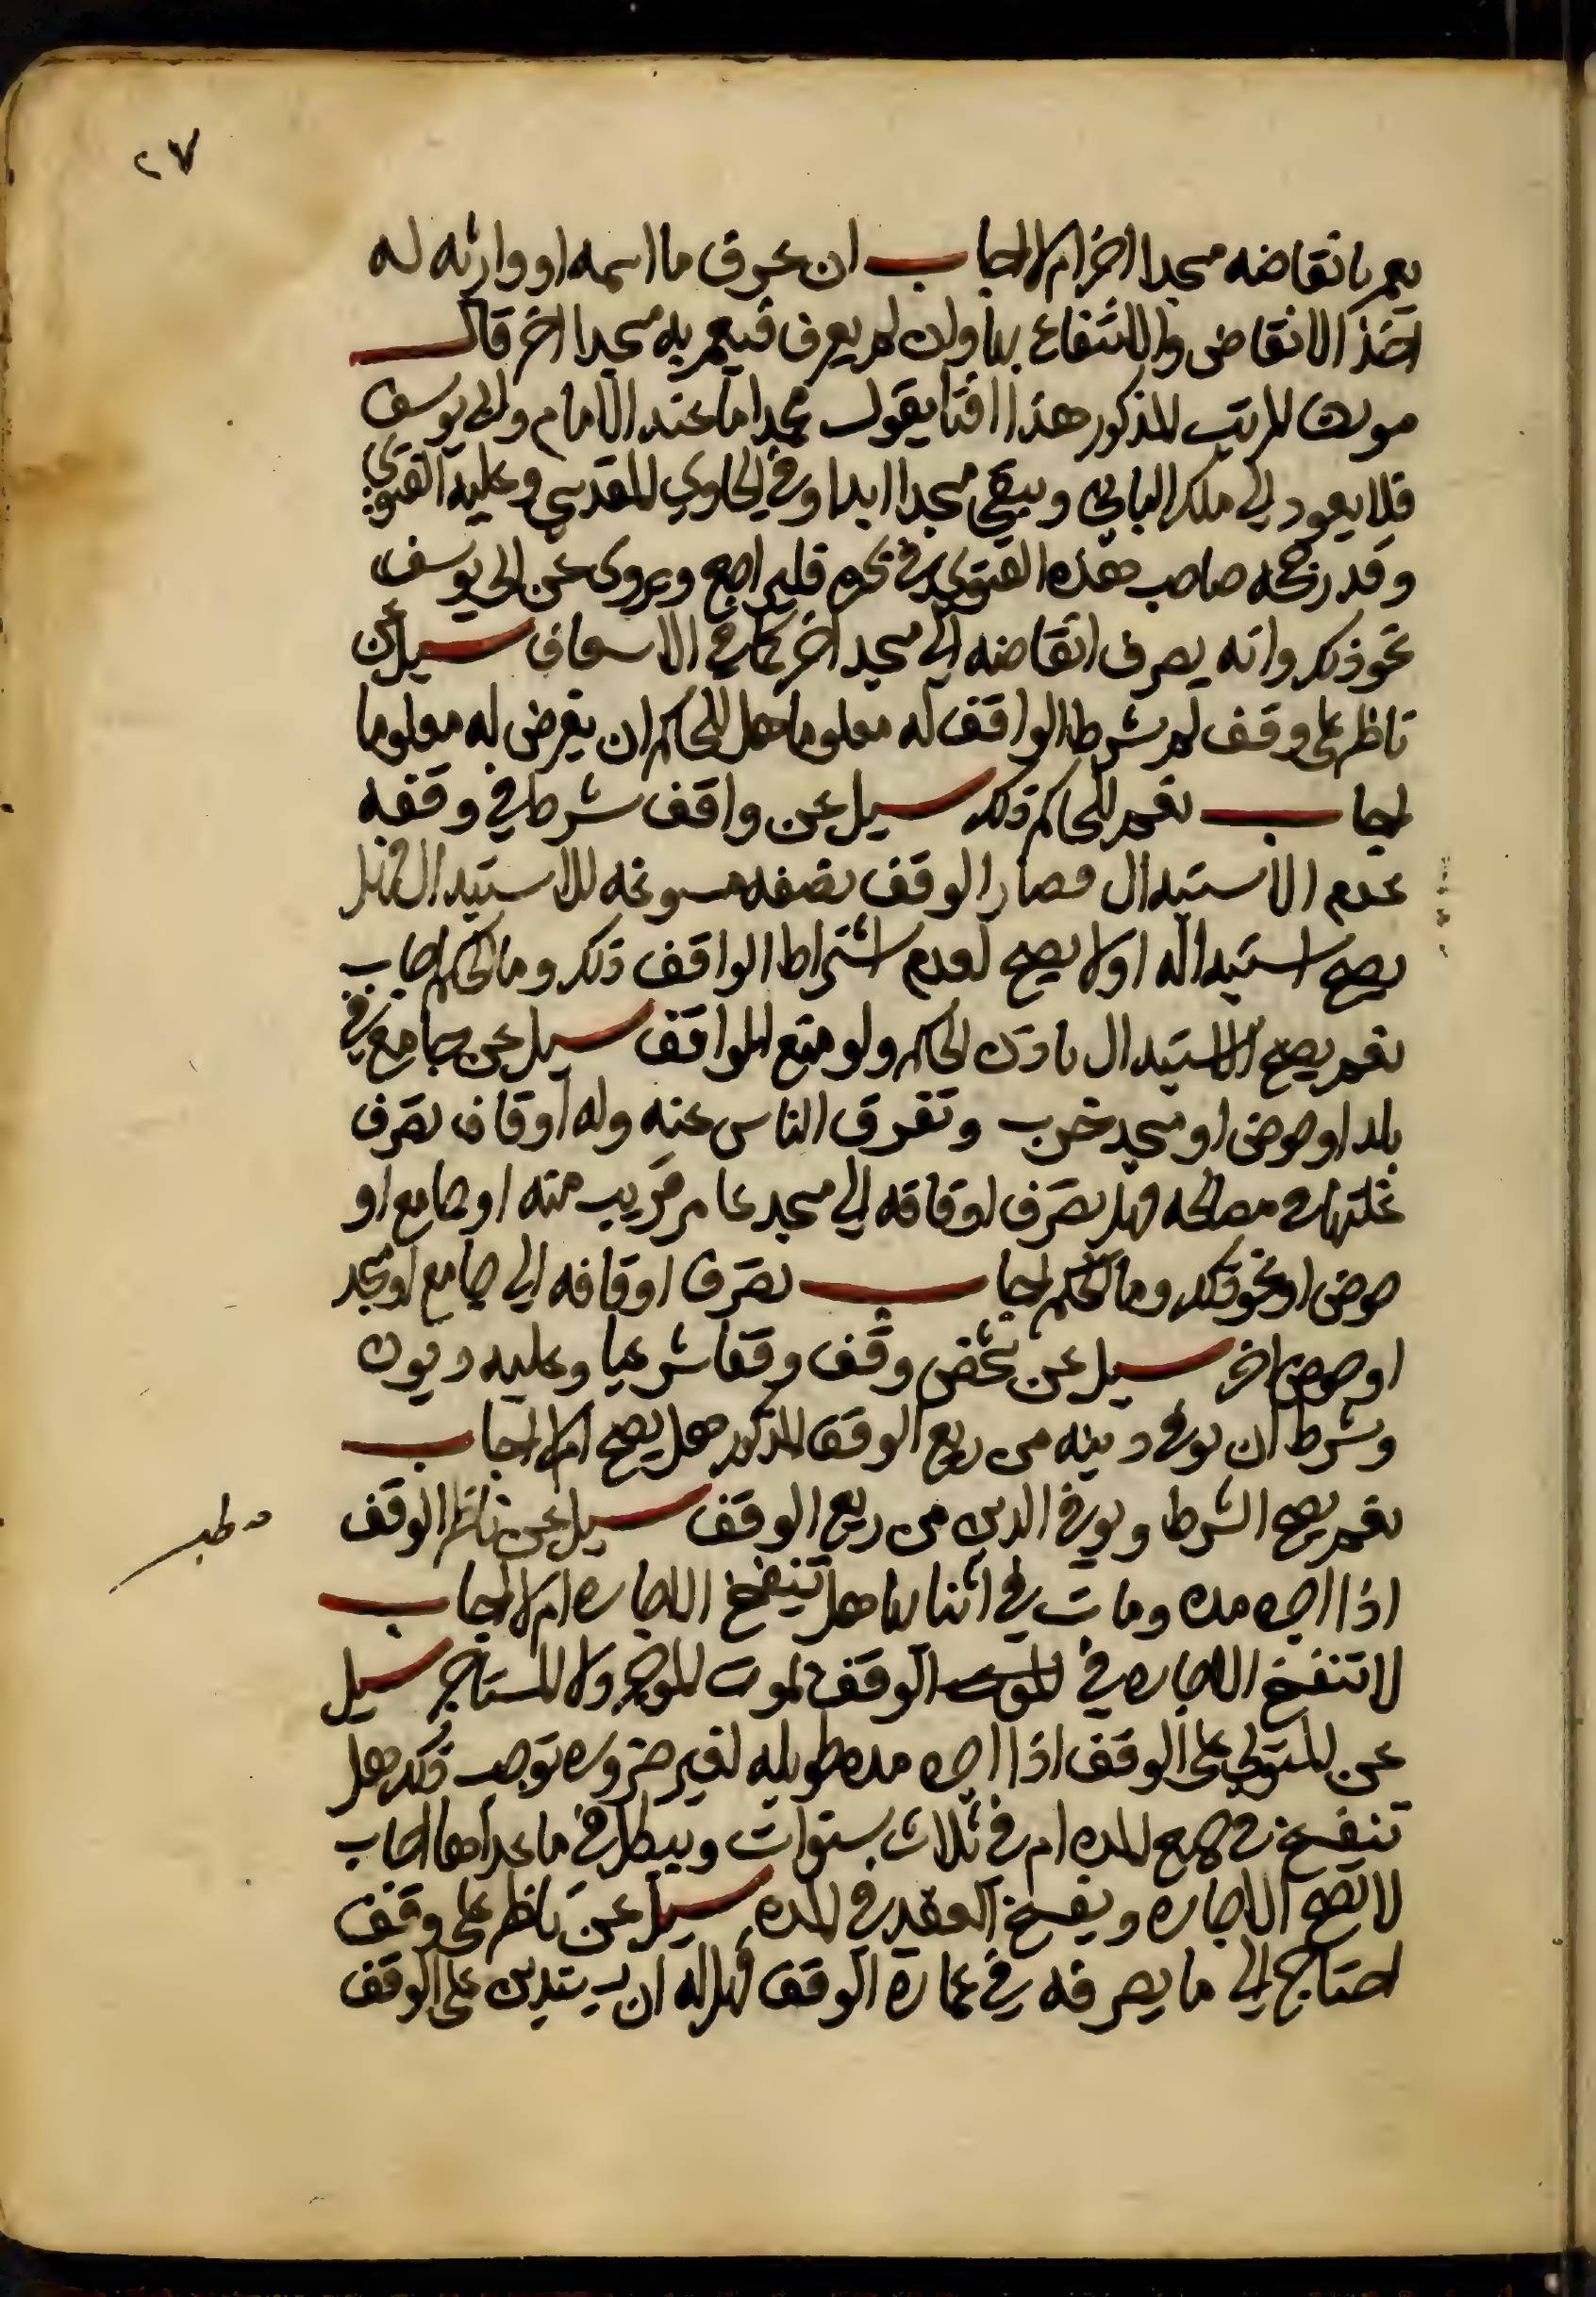 ٢٧
يعمر بانقاضه مسجدا اخرام لا اجاب ان عرف ما اسمه او وارثه له
اخذ الانقاض والانتفاع بها وان لم يعرف فيعمر به مسجدا اخر قال
مولانا المرتب المذكور هذا افتا بقول محمد اما عند الامام وابي يوسف
فلا يعود الي ملك الباني ويبقي مسجدا ابدا وفي الحاوي المقدسي وعليه الفتوي
وقد رجحه صاحب هذه الفتوي في بحره فليراجع ويروي عن ابي يوسف
نحو ذلك وانه يصرف انقاضه الي مسجد اخر كما في الاسعاف سيل عن
ناظر علي وقف لم يشرط الواقف له معلوما هل للحاكم ان يفرض له معلوما
اجاب نعم للحاكم ذلك سيل عن واقف شرط في وقفه
عدم الاستبدال فصار الوقف بصفه مسوغه للاستبدال فهل
يصح استبداله اولا يصح لعدم اشتراط الواقف ذلك وما الحكم اجاب
نعم يصح الاستبدال باذن الحاكم ولو منع الواقف سيل عن جامع في
بلد او حوض او مسجد خرب وتفرق الناس عنه وله اوقاف تصرف
غلتها في مصالحه فهل تصرف اوقافه الي مسجد عامر قريب منه او جامع او
حوض او نحو ذلك وما الحكم اجاب تصرف اوقافه الي جامع او مسجد
او حوض اخر سيل عن شخص وقف وقفا شرعيا وعليه ديون
وشرط ان يوفي دينه من ريع الوقف المذكور هل يصح ام لا اجاب
نعم يصح الشرط ويوفي الدين من ريع الوقف سيل عن ناظر الوقف
اذا اجره مده ومات في اثنايها هل تنفسخ الاجاره ام لا اجاب
لا تنفسخ الاجاره في الوقف لموت الموجر ولا المستاجر سيل
عن المتولي علي الوقف اذا اجره مده طويله لغير ضروره توجب ذلك هل
تنفسخ في جميع المده ام في ثلاث سنوات ويبطل في ما عداها اجاب
لا تصح الاجاره ويفسخ العقد في المده سيل عن ناظر علي وقف
احتاج الي ما يصرفه في عمارة الوقف فهل له ان يستدين علي الوقف